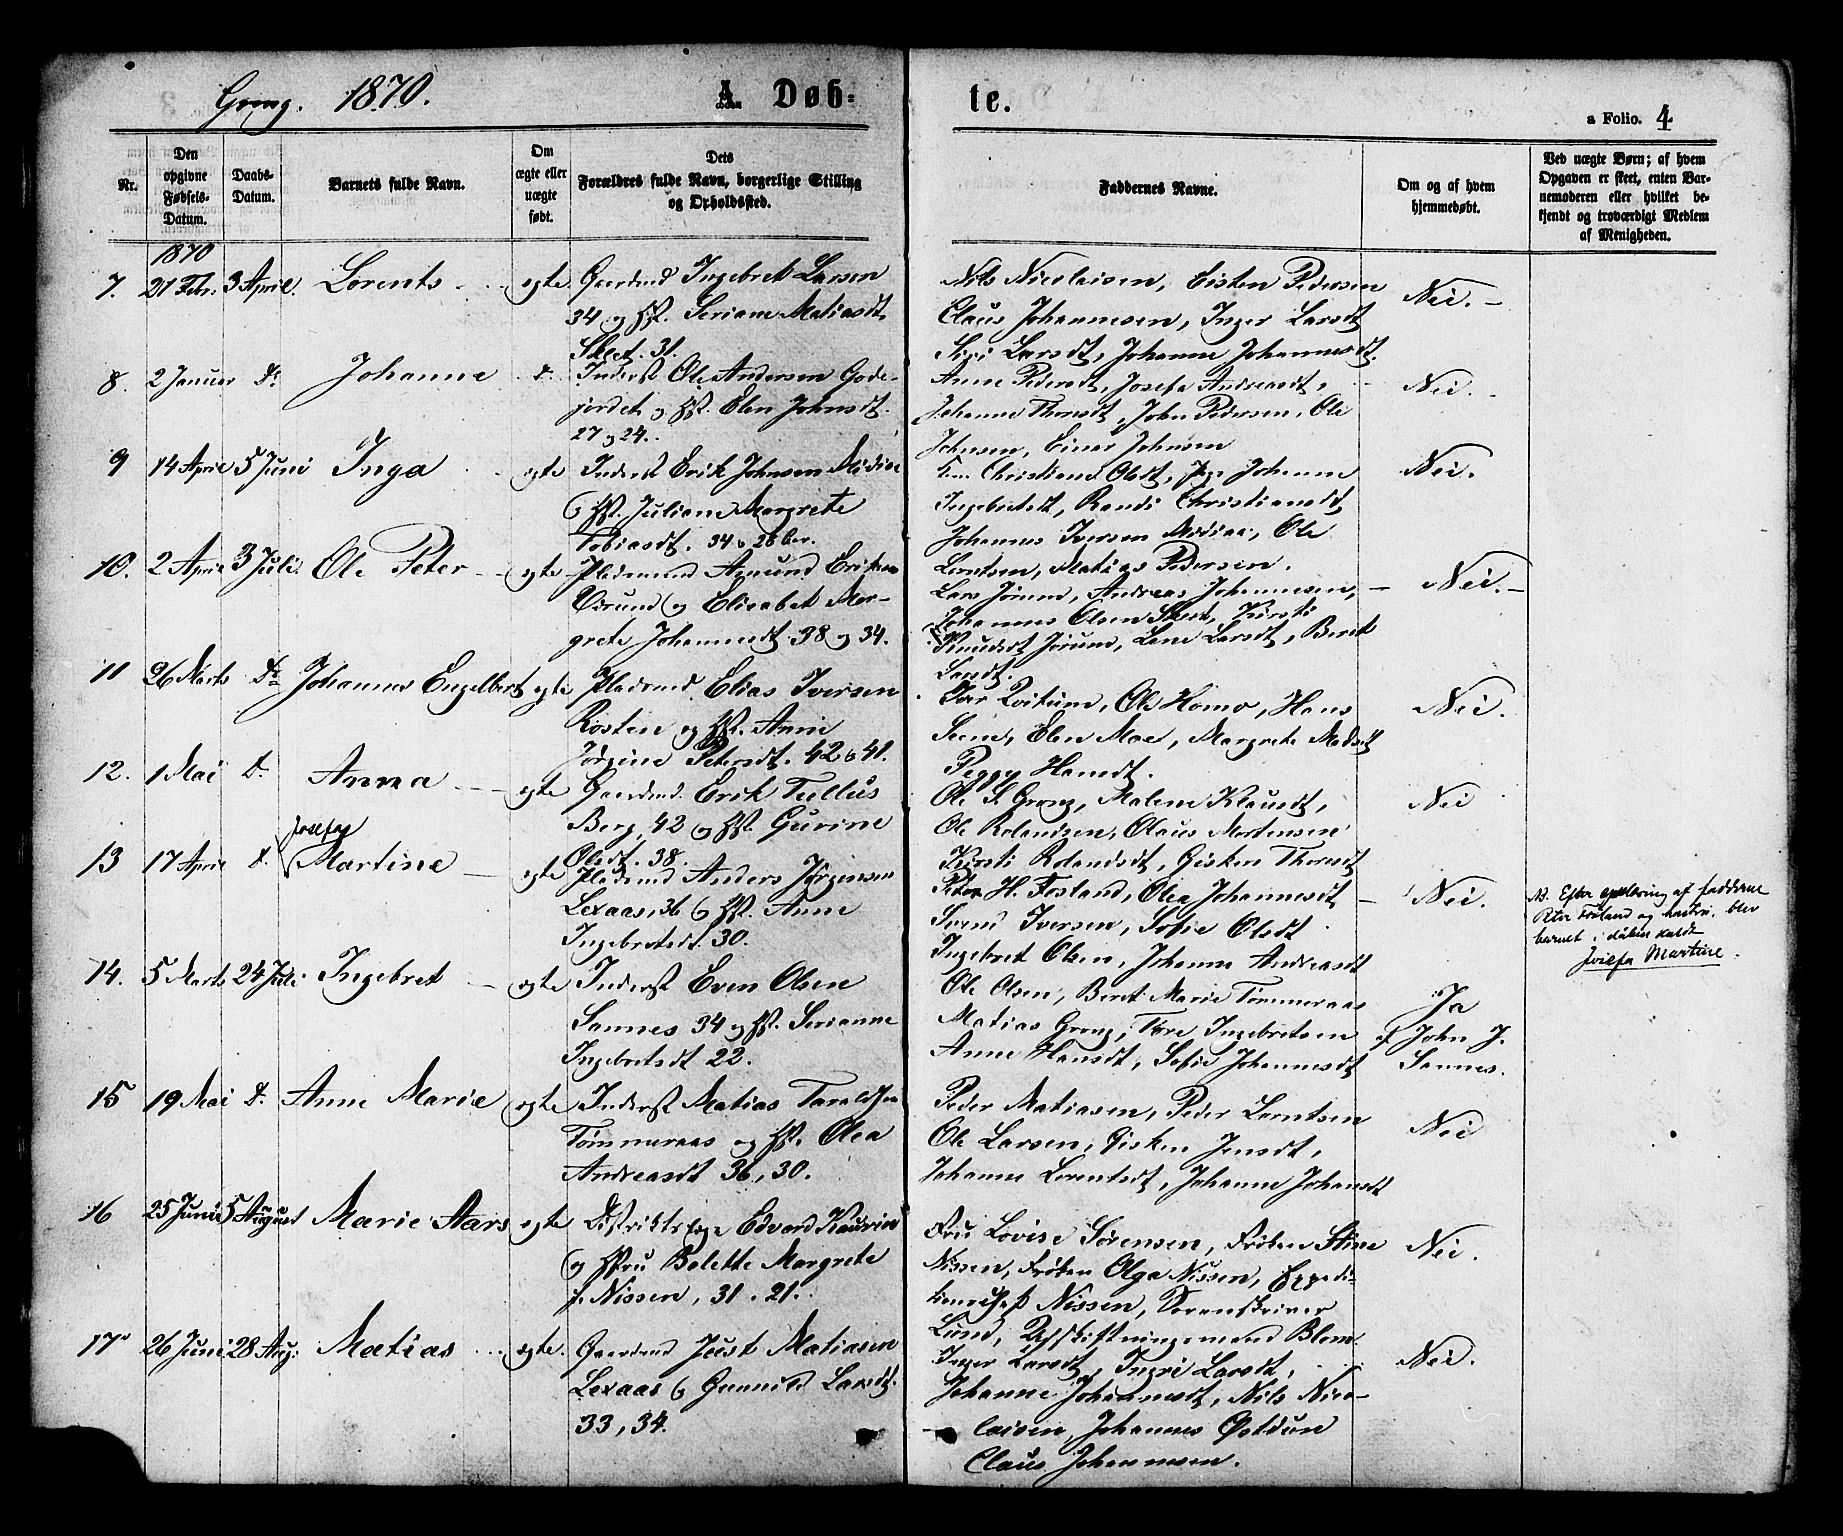 Grong. 1870. A. Døb-
te. a Folio. 4
Nr.
Den opgivne Fødsels-Datum.
Daabs-Datum.
Barnets fulde Navn.
Om ægte eller uægte født.
Dets Forældres fulde Navn, borgerlige Stilling og Opholdssted.
Faddernes Navne.
Om og af hvem hjemmedøbt.
Ved uægte Børn; af hvem Opgaven er skeet, enten Barnemoderen eller hvilket bekjendt og troværdigt Medlem af Menigheden.
1870
7. 21 Febr. 3 April. Lorents ægte Gaardmd Ingebret Larsen
34 og Hst. Seriane Matiasdt.
31.
Nils Nicolaisen, Eisten Pedersen
Claus Johannesen, Inger Larsdt
Siri Larsdt, Johanne Johannesdt.
Nei.
8. 2 Januar Do Johanne Do Inderst Ole Andersen Gode-
jordet og Hst. Elen Johnsdt.
27 og 24.
Anne Pedersdt, Josefa Andreasdt,
Johanne Thomsdt, John Pedersen, Ole
Johnsen, Einar Johnsen
Nei.
9 14 April 5 Juni Inga ægte Inderst Erik Johnsen Mediaa
og Hst. Juliane Margrete
Tobiasdt. 34 og 26
Christiane Olsdt, Johanne
Ingebretsdt, Randi Christiansdt,
Johannes Iversen Mediaa, Ole
Lorntsen, Matias Pedersen.
Nei.
10. 2 April 3 Juli. Ole Peter ægte Pladsmand Amund Eriksen
og Elisabet Mar-
grete Johannesdt. 38 og 34.
Lars Jørum, Andreas Johannesen,
Johannes Olsen Kirsti
Knudsdt Jørum, Lene Larsdt, Beret
Larsdt.
Nei.
11 26 Marts Do Johannes Engelbert ægte Pladsmd. Elias Iversen
Rosten og Hst. Anne
Jørgine Petersdt. 42 og 41.
Iver Ole Homo, Hans
Seem, Elen Moe, Margrete Madsdt
Peggy Hansdt.
Nei.
12. 1 Mai Do. Anna ægte Gaardmd. Erik Tullus
Berg, 42 og Hst. Gurine
Olsdt. 38.
Ole S. Grong, Malene Klausdt,
Ole Rolandsen, Olaus Mortensen
Kirsti Rolandsdt, Gisken Thomsdt
Nei
13 17 April Do. Josefa
Martine ægte Pladsmd Anders Jørgensen
Lexaas, 36 og Hst. Anne
Ingebretsdt. 30.
Peter H. Fosland, Olea Johannesdt
Svend Iversen, Sofie Olsdt
Ingebret Olsen, Johanna Andreasdt
Nei.
NB. Efter opklaring af fadderne
Peter Fosland og hustru, blev
barnet i dåben kaldt
Josefa Martine.
14. 5 Marts 24 Juli Ingebret ægte Inderst Even Olsen
Sannes 34 og Hst. Serianne
Ingebretsdt 22.
Ole Olsen, Beret Marie Tømmeraas
Matias Grong, Tore Ingebretsen
Anne Hansdt, Sofie Johannesdt
Ja
af John J.
Sannes.
15 19 Mai Do. Anne Marie ægte Inderst Matias Taraldsen
Tømmeraas og Hst. Olea
Andreasdt 36, 30.
Peder Matiasen, Peder Lorntsen
Ole Larsen, Gisken Jensdt,
Johanne Lorentsdt, Johanne Johansdt
Nei
16 25 Juni 5 August Marie Aars ægte Distriktslæge Edvard Kaurin
og Hstru Bolette Margrete
f. Nissen, 31 . 21.
Fru Lovise Sørensen, Frøken Stine
Nissen, Frøken Olga Nissen, Expedi-
tionschef Nissen, Sorenskriver
Lund, Udskiftningsmand Blom.
Nei.
17. 26 Juni 28 Aug. Matias ægte. Gaardmd Just Matiasen
Lexaas og Gunnild Larsdt.
33, 34.
Inger Larsdt, Ingri Larsdt,
Johanne Johannesdt, Nils Nico-
laisen, Johannes Østdun
Claus Johannesen.
Nei.